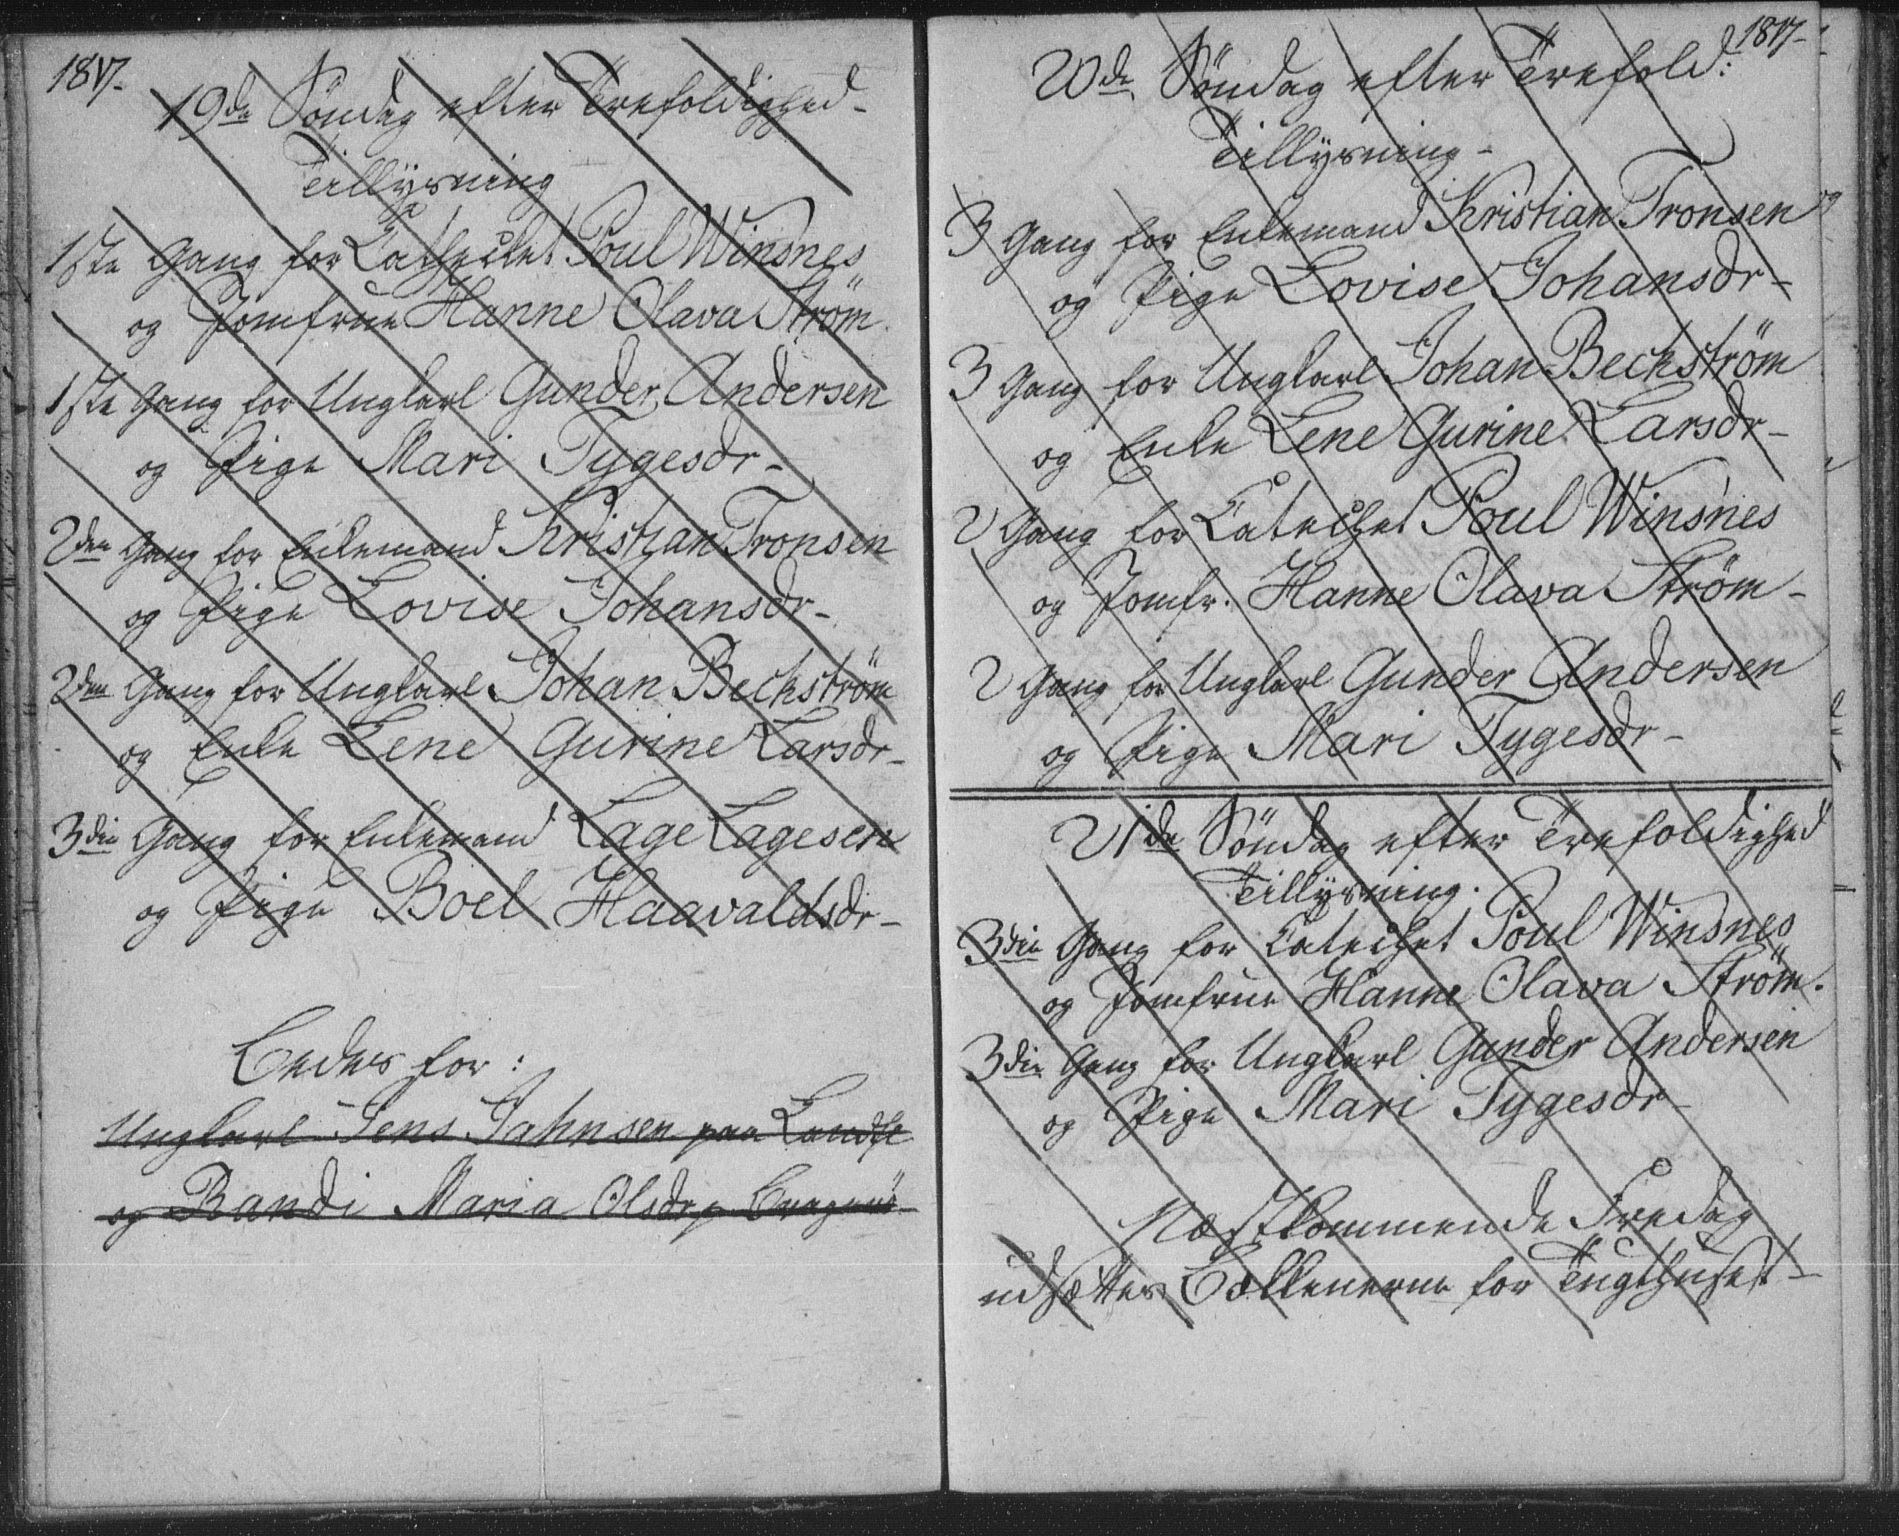 1817.
19de Søndag efter Trefoldighed-
Tillysning
1ste Gang for Cathechet Poul Winsnes
og Jomfrue Hanne Olava Strøm.
1ste Gang for Ungkarl Gunder Andersen
og Pige Mari Tygesdr-
2den Gang for Enkemand Kristian Tronsen
og Pige Lovise Johansdr-
2den Gang for Ungkarl Johan Beckstrøm
og Enke Lene Gurine Larsdr-
3die Gang for Enkemand Lage Lagesen
og Pige Boel Haavaldsdr-
Bedes for:
Ungkarl Jens Jahnsen paa Landfl
og Randi Maria Olsdr p Bragenæs
1817-
20de Søndag efter Trefold:
Tillysning-
3 Gang for Enkemand Kristian Tronsen
og Pige Lovise Johansdr-
3 Gang for Ungkarl Johan Beckstrøm
og Enke Lene Gurine Larsdr-
2 Gang for Catechet Poul Winsnes
og Jomfr. Hanne Olava Strøm-
2 Gang for Ungkarl Gunder Andersen
og Pige Mari Tygesdr-
21de Søndag efter Trefoldighed
Tillysning.
3die Gang for Catechet Poul Winsnes
og Jomfrue Hanne Olava Strøm.
3die Gang for Ungkarl Gunder Andersen
og Pige Mari Tygesdr-
Næstkommende Fredag
udsættes Bækkenerne for Tugthuset-